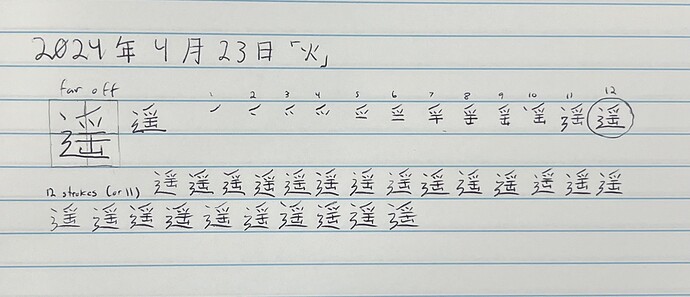 2024年4月23日「火」
far off
1 2 3 4 5 6 7 8 9 10 11 12
遥 遥 遥
12 strokes (or 11) 遥 遥 遥 遥 遥 遥 遥 遥 遥 遥 遥 遥 遥 遥
遥 遥 遥 遥 遥 遥 遥 遥 遥 遥